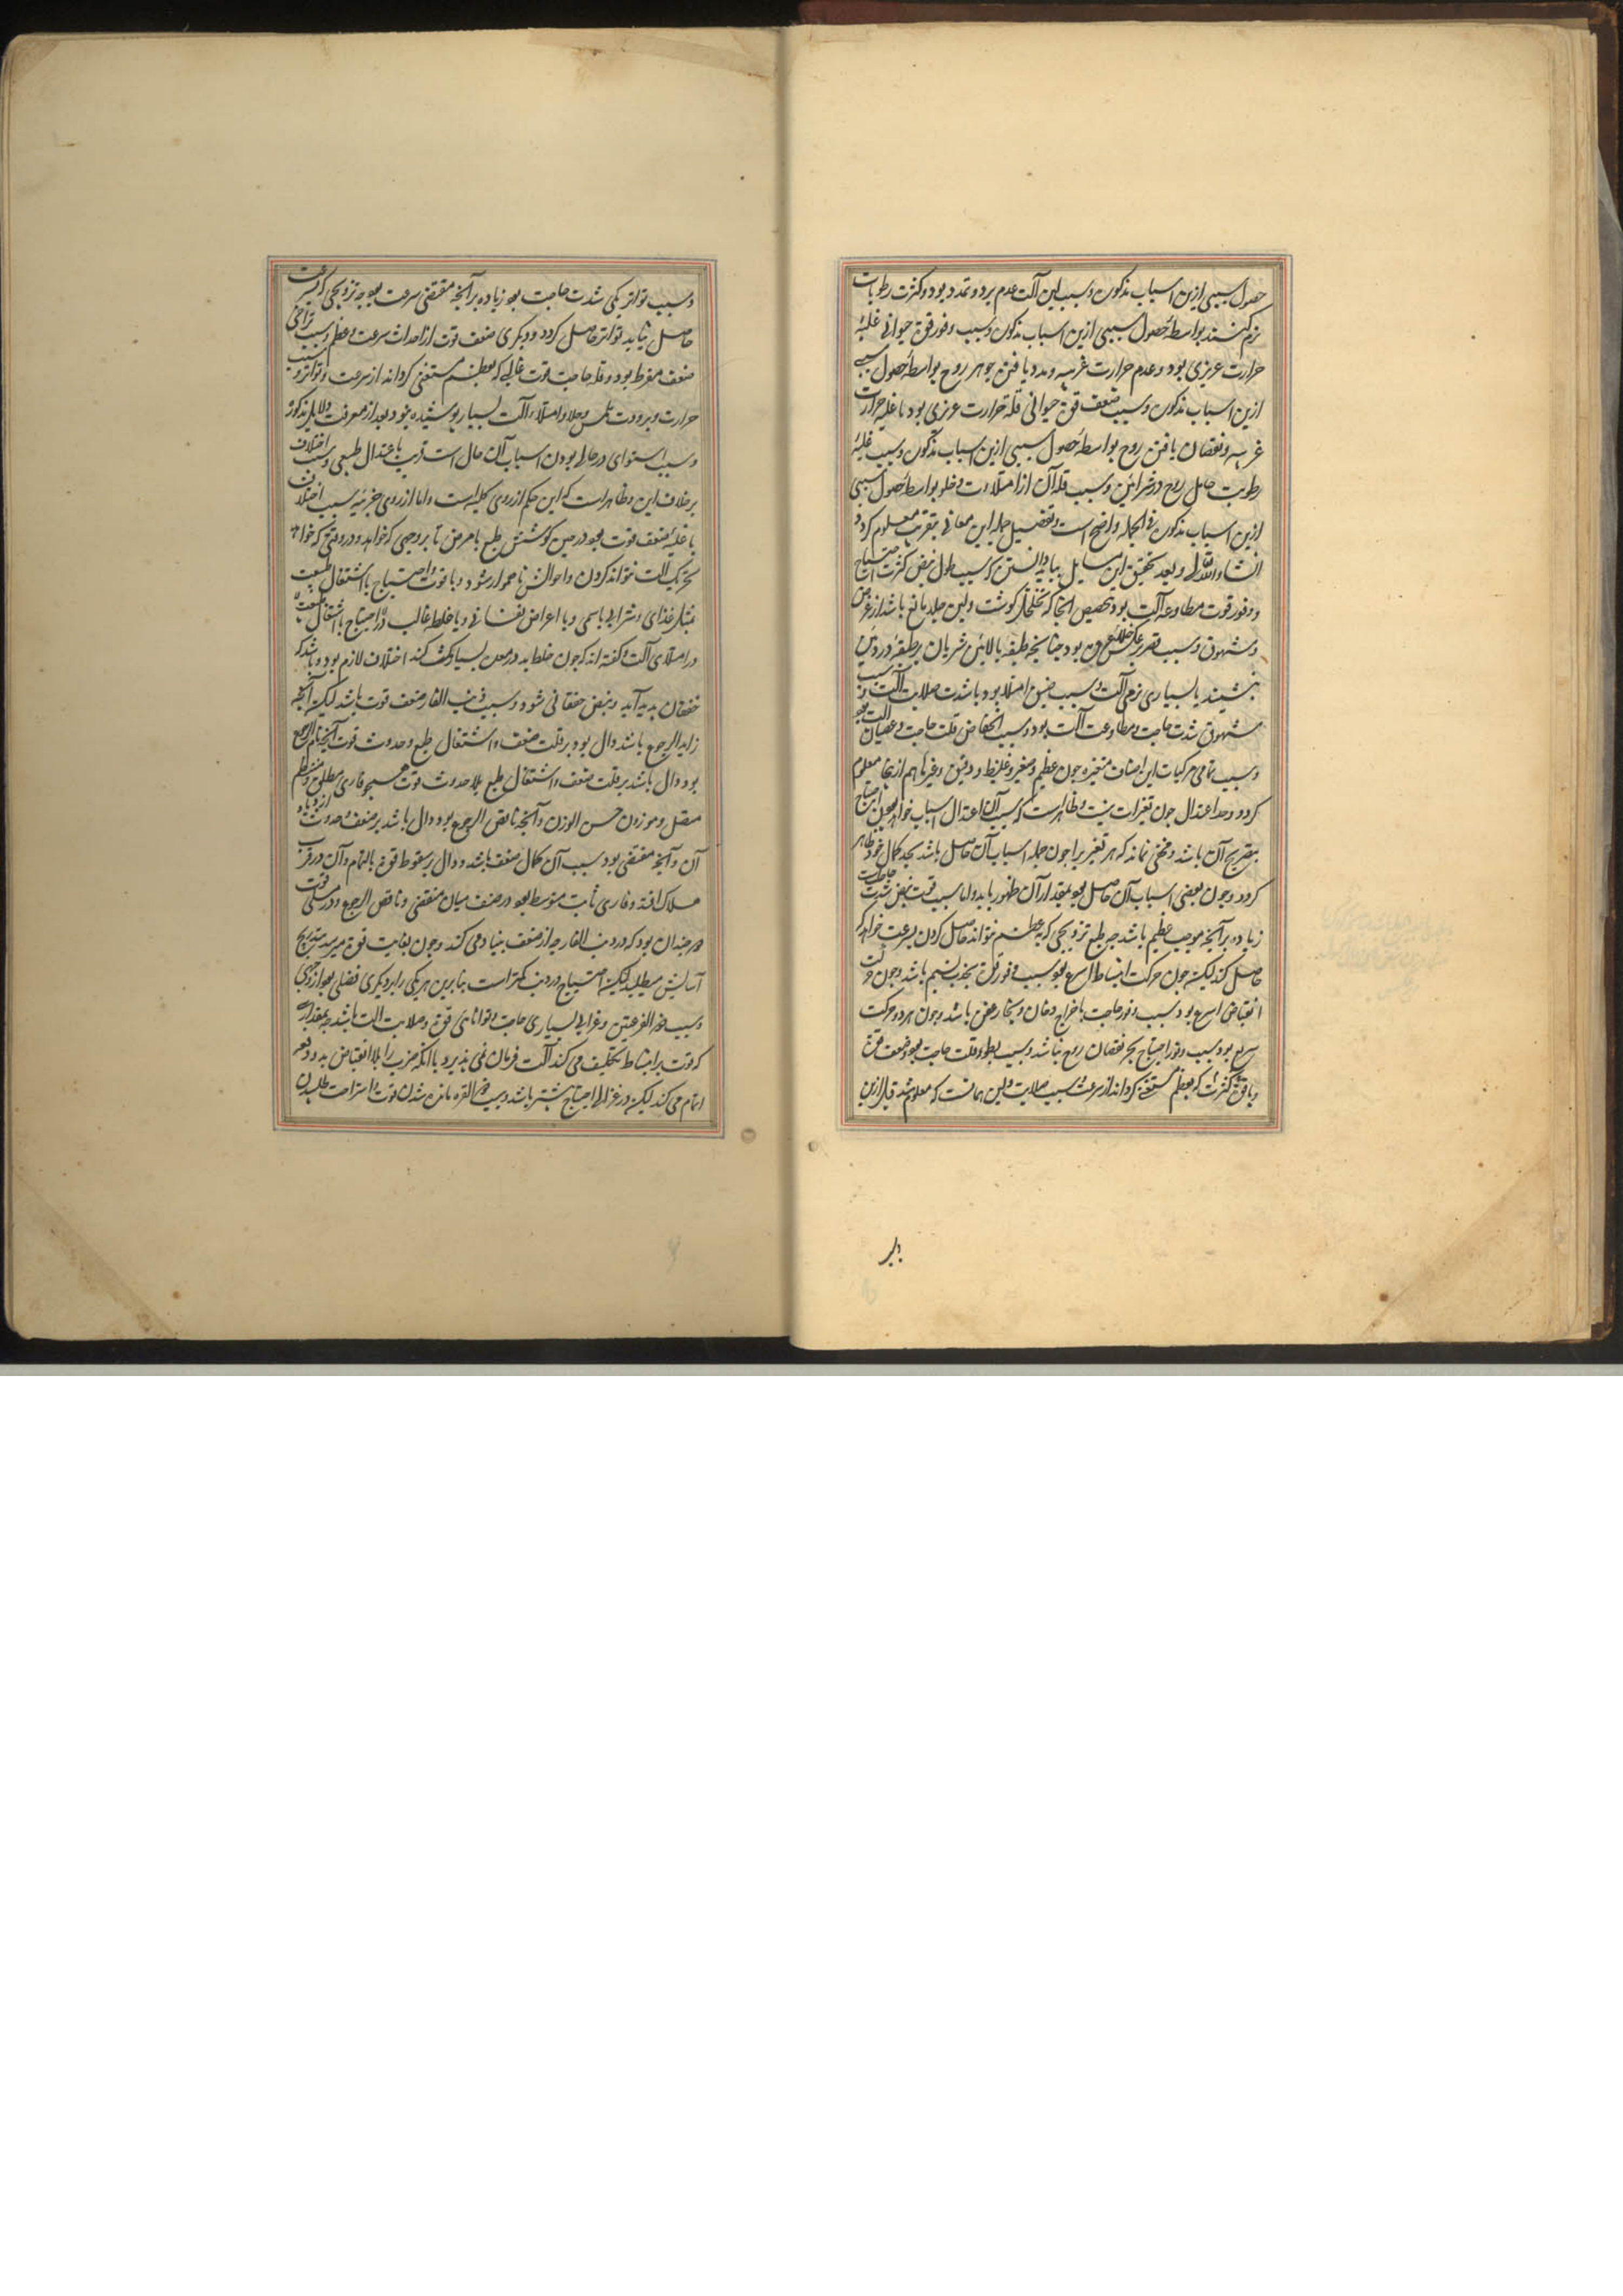 حصول سببی ازین اسباب مذکون و سبب لین آلت عدم برد و تمدد بود و کثرت رطوبات
نرم کنند بواسطهٔ حصول سببی ازین اسباب مذکون و سبب وفور قوة حیوانی غلبهٔ
حرارت غریزی بود و عدم حرارت غریبه و مدد یافتن جوهر روح بواسطهٔ حصول سببی
ازین اسباب مذکون و سبب ضعف قوة حیوانی قلة حرارت غریزی بود با غلبه حرارت
غریبه و نقصان یافتن روح بواسطهٔ حصول سببی ازین اسباب مذکون و سبب غلبهٔ
رطوبت حامل روح در شرائین و سبب قلة آن از امتلاءات و خلو بواسطهٔ حصول سببی
ازین اسباب مذکون فی الجمله واضح است و تفضیل جمله این معانی بتقریب معلوم کردد
انشاءالله و بعد تحقیق این مسایل بباید دانستن که سبب طول نبض کثرت احتیاج
و وفور قوت مطاوعه آلت بود تخصیص انجا که تخلخل کوشت و لین جلد مانع باشد از عرض
و شهوق و سبب قصر بر عکس این بود چنانچه طبقهٔ بالائین شریان بر طبقهٔ درونین
بنشیند یا بسیاری نرمی آلت و سبب ضیق امتلا بود یا شدت صلابت آلت و سبب
شهوق شدت حاجت و مطاوعت آلت بود و سبب انخفاض قلت حاجت و عصیان آلت بود
و سبب تمامی مرکبات این اصناف متغیره چون عظیم و صغیر و غلیظ و دقیق و غیرها هم ازینها معلوم
کردد و حد اعتدال چون تغیرات نیست و ظاهرست که سبب آن اعتدال اسباب خواهد بود احتیاج
بتصریح آن باشد و مخفی نماند که هر تغییر را چون جمله اسباب آن حاصل باشد بحد کمال خود ظاهر
کردد و چون بعضی اسباب آن حاصل بود بمقدار آن ظهور یابد و اما سبب قوت نبض شدت حاجت
زیاده بر آنچه موجب عظیم باشد چه طبع ترویحی که بعظم نتواند حاصل کردن بسرعت خواهد که
حاصل کند لیکن چون حرکت انبساط اسرع بود سبب وفور قلة بجذب نسیم باشد و چون حرکت
انقباض اسرع بود سبب وفور حاجت باخراج دخان و بخار عفن باشد و چون هر دو حرکت
سریع بود سبب وفور احتیاج بجبر نقصان روح باشد و سبب بطوء قلت حاجت بود و ضعف قوة
و یا قوة کثرت که بعظم مستغنی کرداند از سرعت و سبب صلابت و لین همانست که معلوم شد قبل ازین
و سبب تواتر یکی شدت حاجت بود زیاده بر آنچه مقتضی سرعت بود چه ترویحی که بسرعت
حاصل نیاید بتواتر حاصل کردد و دیکری ضعف قوت از احداث سرعت و عظم و سبب تراخی
ضعف مفرط بود و قلة حاجت قوت غالبی که بعظم مستغنی کرداند از سرعت و تواتر و سبب
حرارت و برودت ملمس و خلا و امتلاء آلت بسیار پوشیده نبود بعد از معرفت دلایل مذکوره
و سبب استوای در حالی بودن اسباب آن حال است قریب باعتدال طبیعی و سبب اختلاف
بر خلاف این و ظاهر است که این حکم از روی کلیه است و اما از روی جزئیه سبب اختلاف
یا غلبهٔ ضعف قوت بود در حین کوشش طبع با مرض تا بر وجهی که خواهد و در وقتی که خواهد
تحریک آلت نتواند کردن و احوالش ناهموار شود و یا قوت و احتیاج با اشتغال طبیعت
بمثل غذای و شرابی یا سمی و یا اعراض نفسانی و یا خلط غالب
در امتلای آلت و کفته اند که چون خلط بد در معده بسیار مکث کند اختلاف لازم بود و باشد که
خفقان بدید آید و نبض خفقانی شود و سبب ذنب الفار ضعف قوت باشد لیکن آنچه
زاید الرجوع باشد دال بود بر قلت ضعف و اشتغال طبع و حدوث قوت آنچه تام الرجوع
بود دال باشد بر قلت ضعف و اشتغال طبع بلا حدوث قوت همچو فاری مطلق و منتظم
متصل و موزون حسن الوزن و آنچه ناقص الرجوع بود دال باشد بر ضعف و حدوث ازدیاد
آن و آنچه منقضی بود سبب آن کمال ضعف باشد و دال بر سقوط قوة بالتمام و آن در قرب
هلاک افتد و فاری ثابت متوسط بود در ضعف میان منقضی و ناقص الرجوع و در مسلی قوت
هر چندان بود که در ذنب الفار چه از ضعف بنیاد می کند و چون بغایت قوة میرسد بتدریج
آسایش میطلبد لیکن احتیاج در ذنب کمتر است بنابرین هر یکی را بر دیکری فضلی بود از وجهی
و سبب ذو القرعتین و غزالی بسیاری حاجت و توانای قوة و صلابت آلت باشد چه بمقداری
که قوت بر انبساط تکلیف می کند آلت فرمان نمی پذیرد با آنکه ضرب را بلا انقباض بدو دفعه
اتمام می کند لیکن در غزالی احتیاج بیشتر باشد و سبب ذو الفتره مانده شدن قوت و استراحت طلبیدن